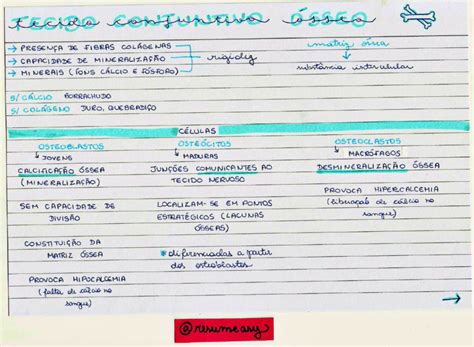 TECIDO CONJUNTIVO ÓSSEO
tecido conjuntivo ósseo
→ PRESENÇA DE FIBRAS COLÁGENAS
→ CAPACIDADE DE MINERALIZAÇÃO
→ MINERAIS (ÍONS CÁLCIO E FÓSFORO)
→ rigidez
matriz óssea
↓
substância intercelular
S/ CÁLCIO BORRALHUDO
S/ COLÁGENO DURO, QUEBRADIÇO
CÉLULAS
OSTEOBLASTOS
↳ JOVENS
CALCIFICAÇÃO ÓSSEA
(MINERALIZAÇÃO)
SEM CAPACIDADE DE
DIVISÃO
CONSTITUIÇÃO DA
MATRIZ ÓSSEA
PROVOCA HIPOCALCEMIA
(falta de cálcio no
sangue)
OSTEÓCITOS
↳ MADURAS
JUNÇÕES COMUNICANTES AO
TECIDO NERVOSO
LOCALIZAM-SE EM PONTOS
ESTRATÉGICOS (LACUNAS
ÓSSEAS)
*diferenciadas a partir
dos osteoblastos
OSTEOCLASTOS
↳ MACRÓFAGOS
DESMINERALIZAÇÃO ÓSSEA
PROVOCA HIPERCALCEMIA
(liberação de cálcio no
sangue)
→
@resumeasy